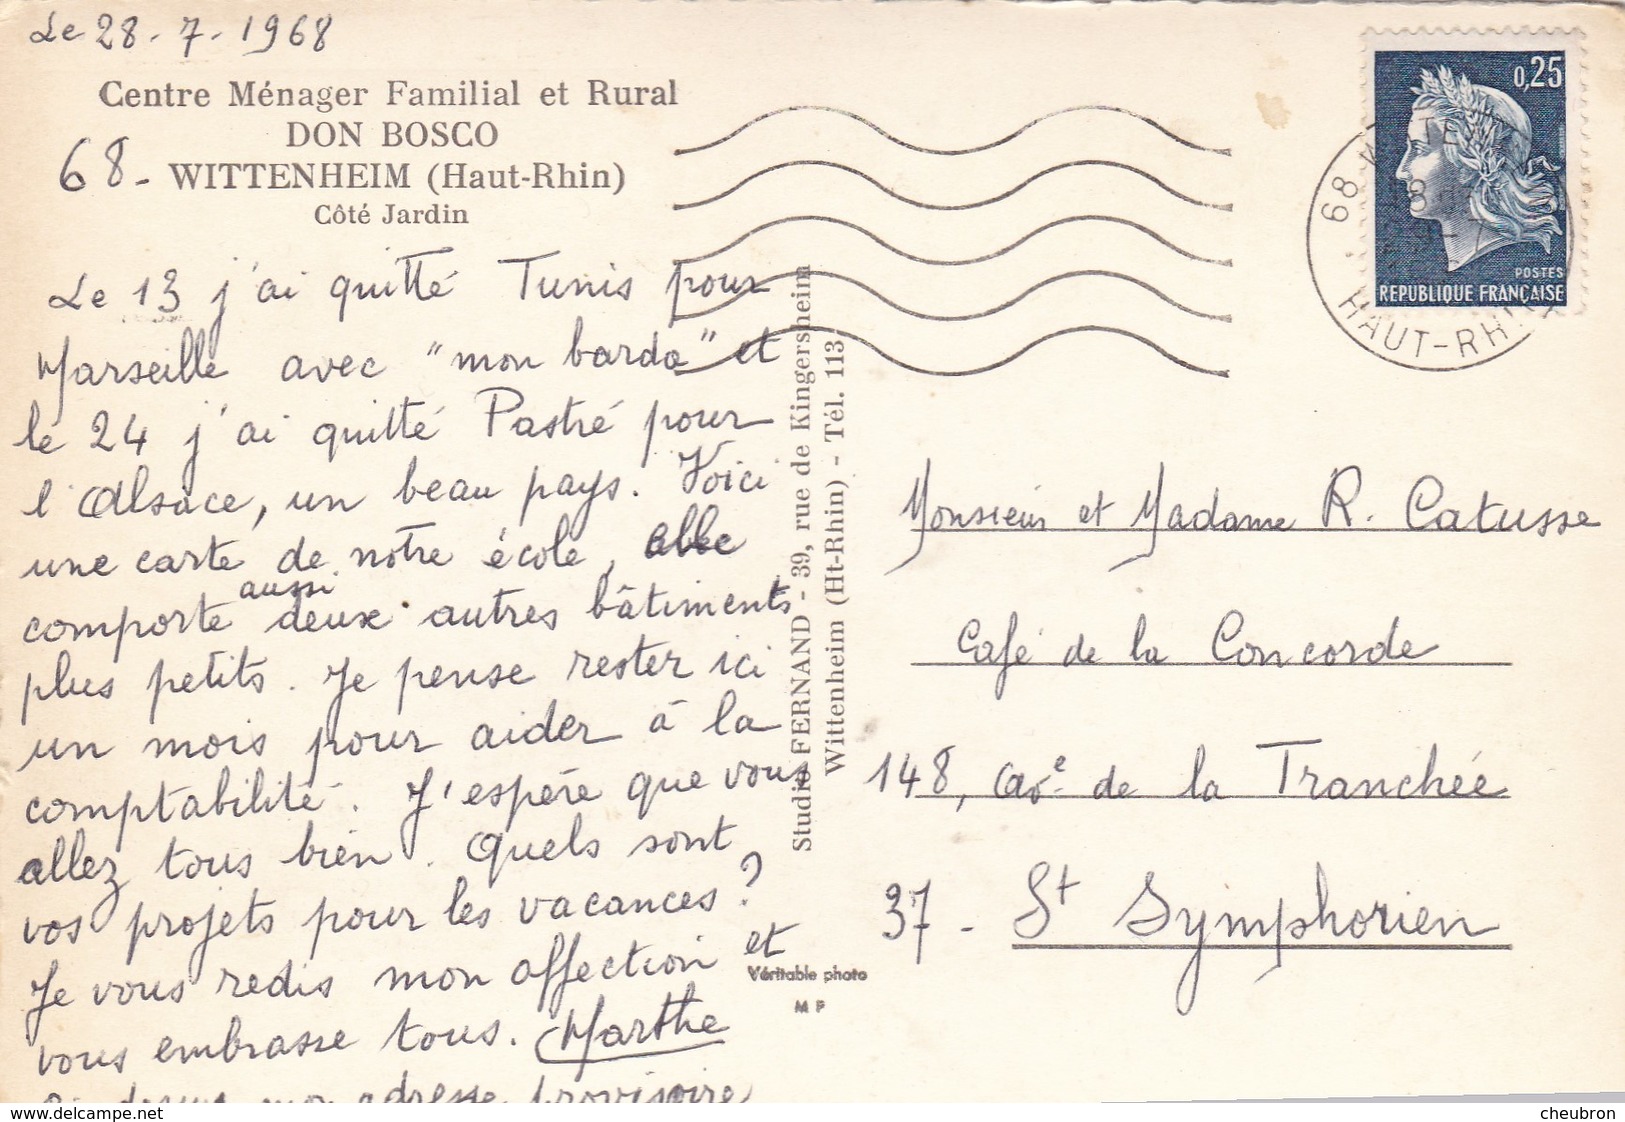 Le 28-7-1968
Centre Ménager Familial et Rural
DON BOSCO
68- WITTENHEIM (Haut-Rhin)
Côté Jardin
Le 13 j'ai quitté Tunis pour
Marseille avec "mon barda" et
le 24 j'ai quitté Pastré pour
l'Alsace, un beau pays. Voici
une carte de notre école, elle
comporte aussi deux autres bâtiments
plus petits. Je pense rester ici
un mois pour aider à la
comptabilité. J'espère que vous
allez tous bien. Quels sont
vos projets pour les vacances?
Je vous redis mon affection et
vous embrasse tous. Marthe
mon adresse provisoire
Studio FERNAND - 39, rue de Kingersheim
Wittenheim (Ht-Rhin) - Tél. 113
Véritable photo
MP
0,25
POSTES
REPUBLIQUE FRANÇAISE
68
HAUT-RHIN
Monsieur et Madame R. Catusse
Café de la Concorde
148, Ave de la Tranchée
37 - St Symphorien
cheubron